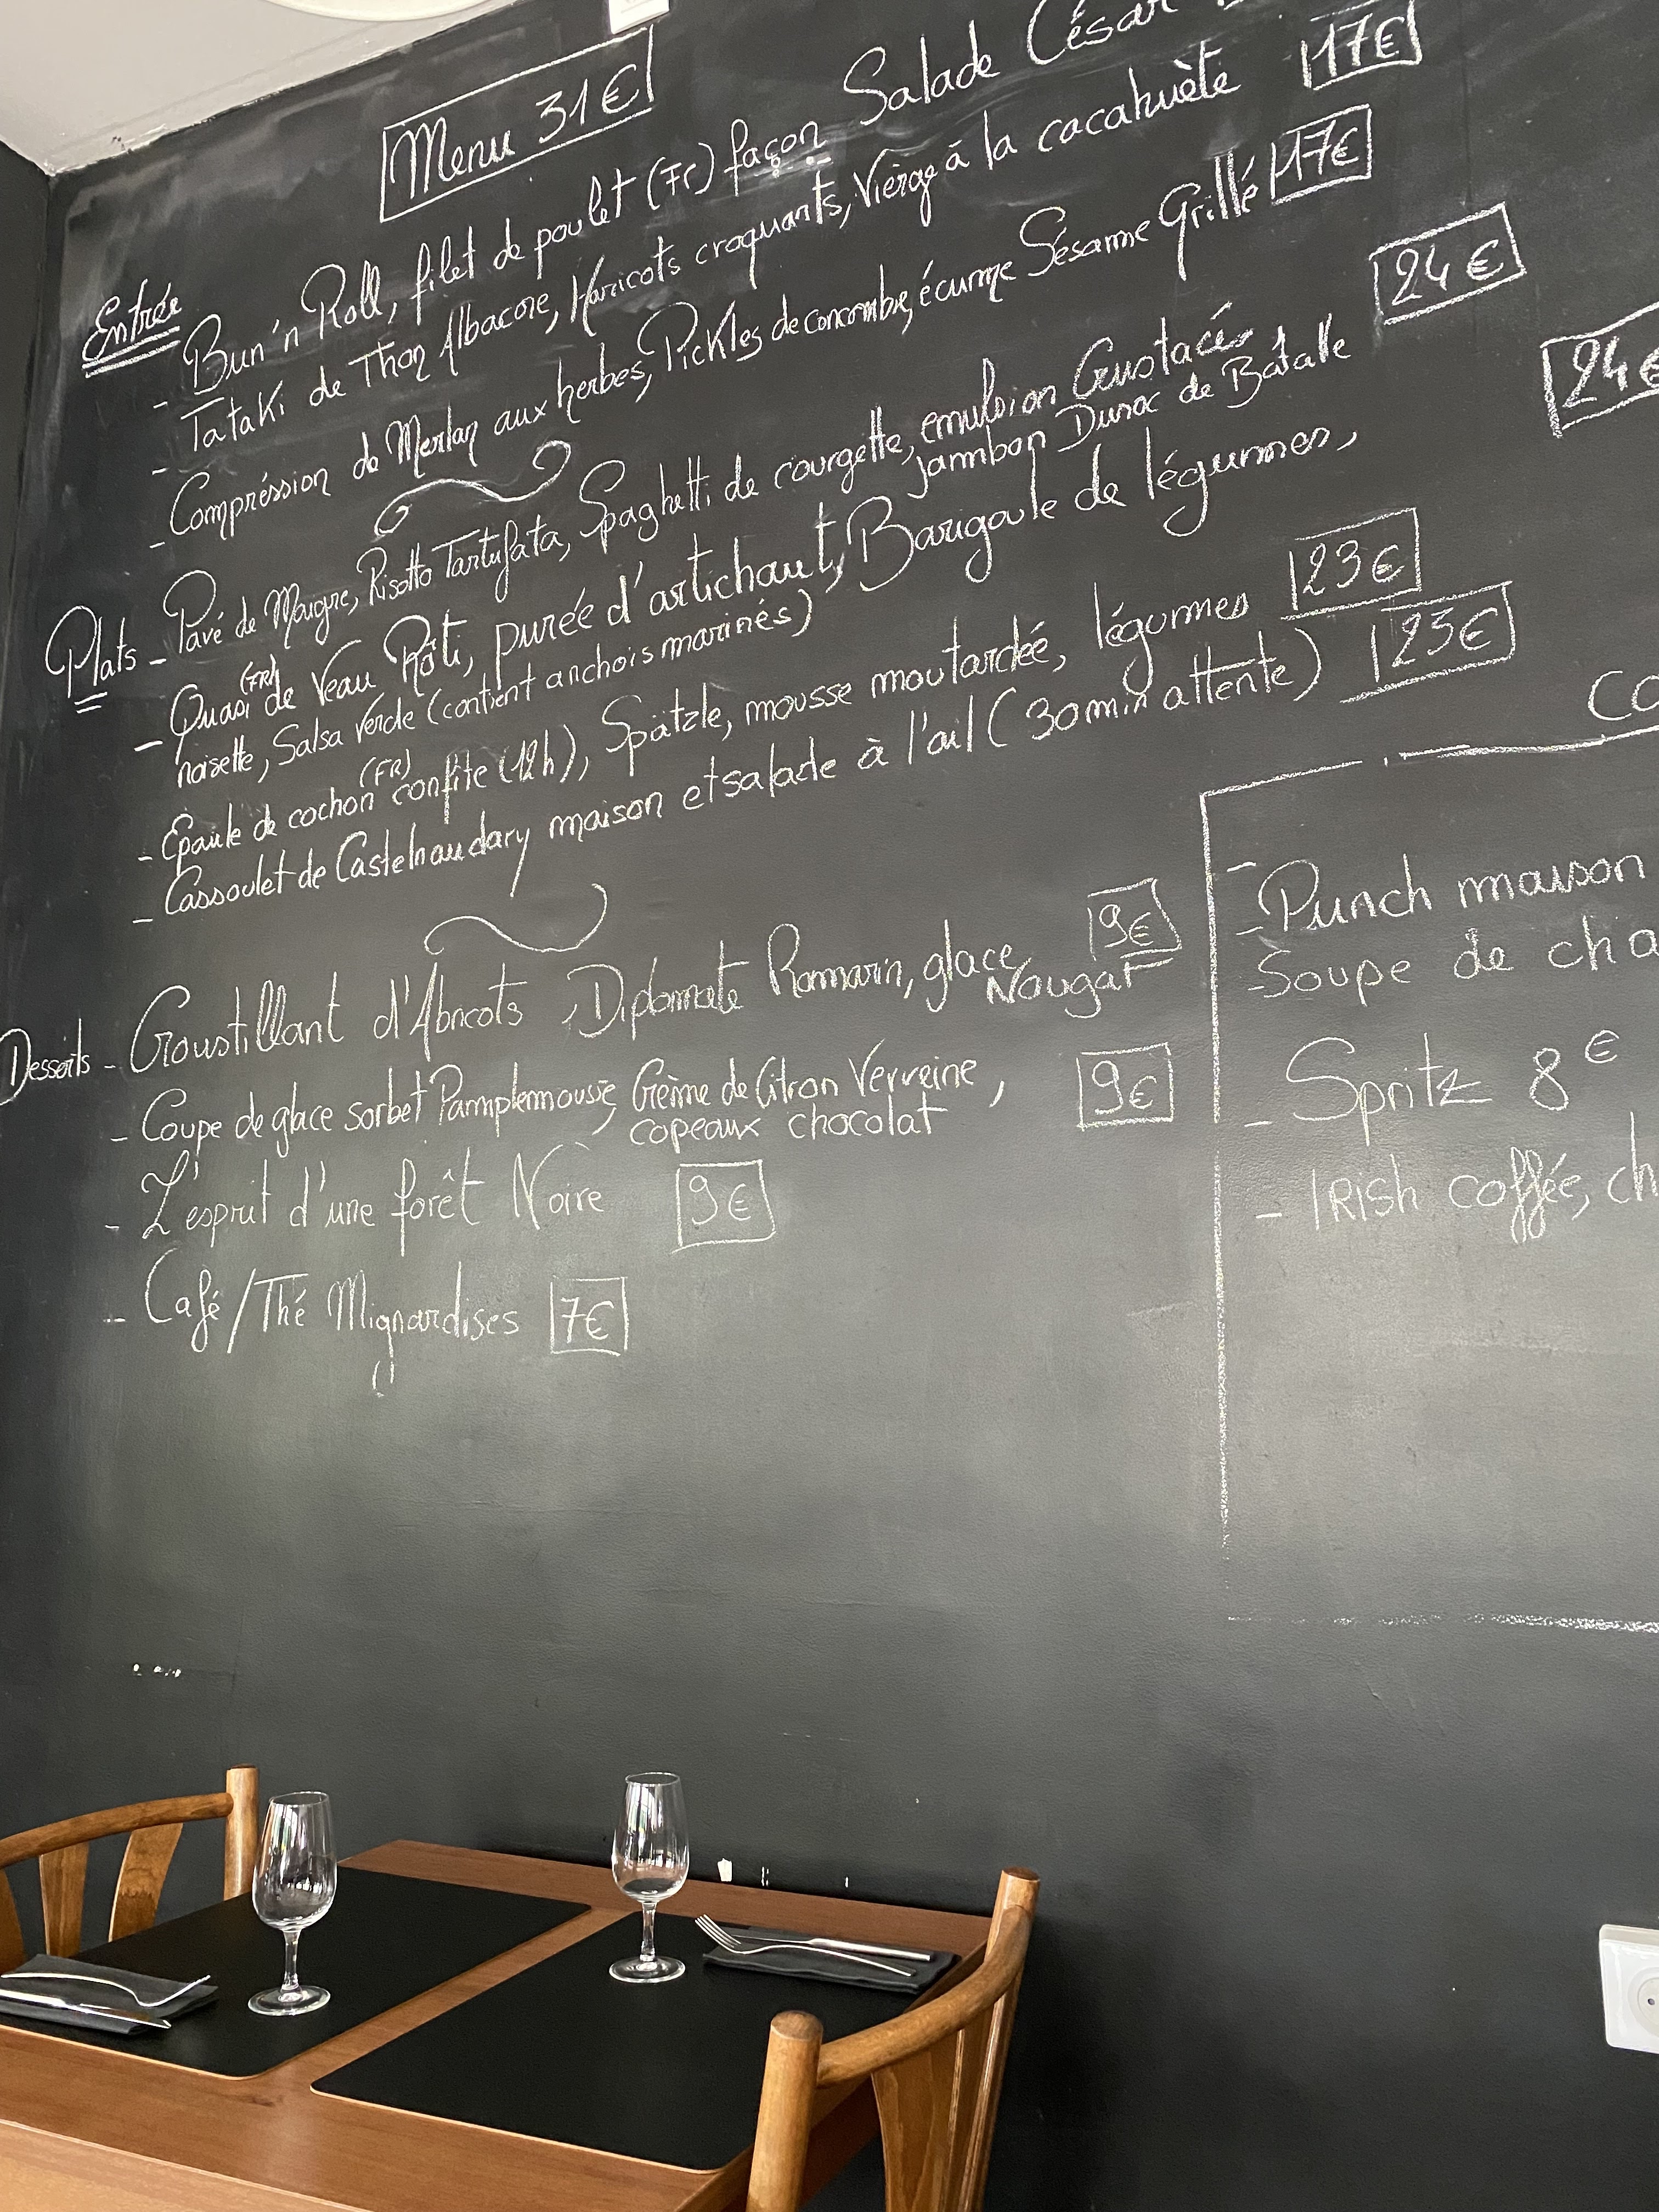 Menu 31€
Entrée
- Bun'n Roll, filet de poulet (FR) façon Salade César
- Tataki de Thon Albacore, Haricots croquants, Vierge à la cacahuète 17€
- Compréssion de Merlan aux herbes, Pickles de concombre, écume Sésame Grillé 17€
Plats - Pavé de Maigre, Risotto Tartufata, Spaghetti de courgette, emulsion Crustacés 24€
- Quasi (FR) de Veau Rôti, purée d'artichaut, Barigoule de légumes, jambon Duroc de Batallé 24€
noisette, Salsa verde (contient anchois marinés)
- Epaule de cochon (FR) confite (12h), Spätzle, mousse moutardée, légumes 23€
- Cassoulet de Castelnaudary maison et salade à l'ail (30min attente) 23€
Desserts - Croustillant d'Abricots, Diplomate Romarin, glace Nougat 9€
- Coupe de glace sorbet Pamplemousse, Crème de Citron Verveine,
copeaux chocolat 9€
- L'esprit d'une forêt Noire 9€
- Café/Thé Mignardises 7€
Co
- Punch maison
- Soupe de cha
- Spritz 8€
- IRISH coffée, ch